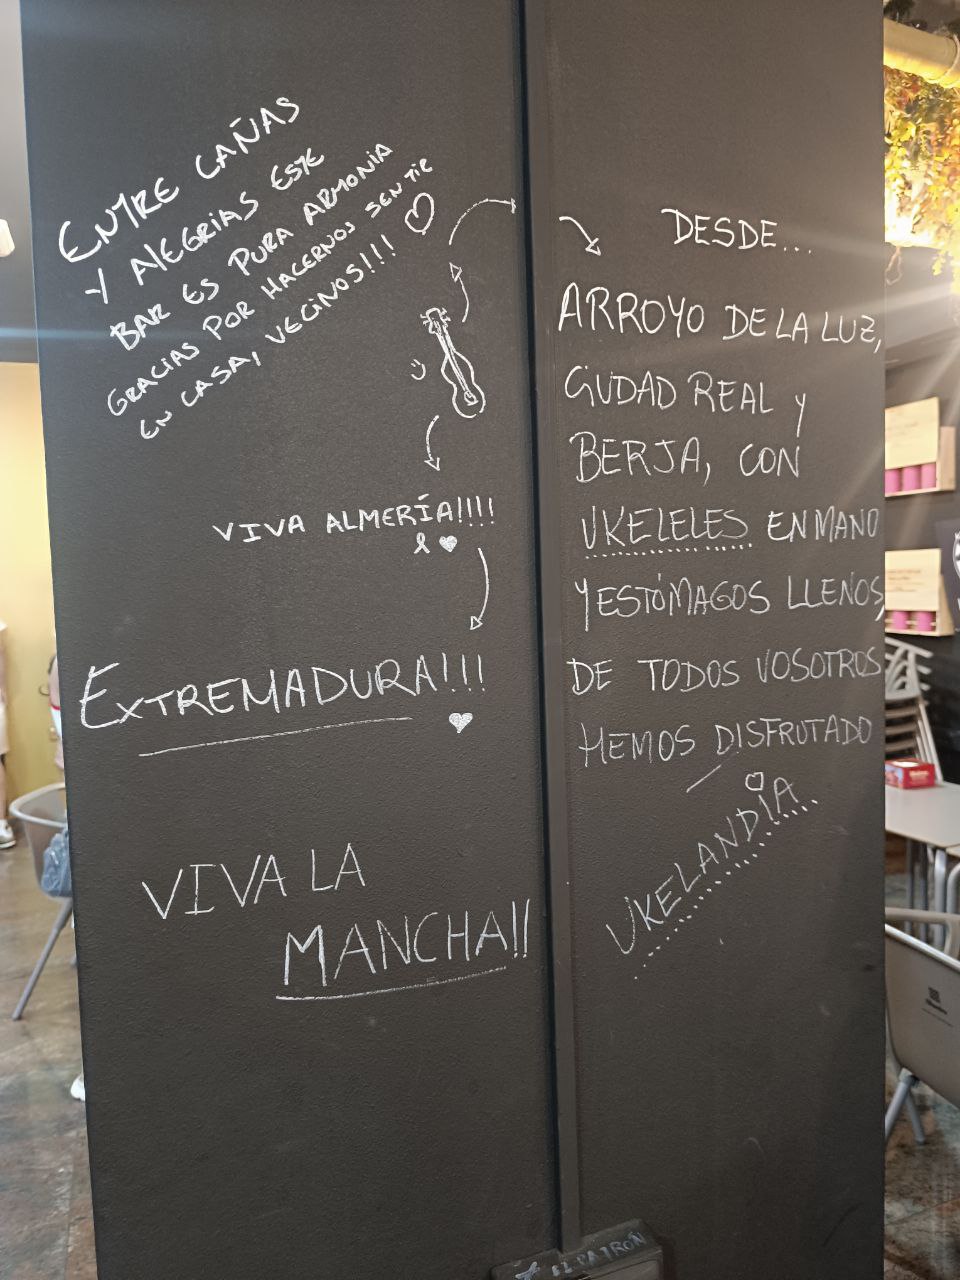 ENTRE CAÑAS
Y ALEGRIAS ESTE
BAR ES PURA ARMONIA
GRACIAS POR HACERNOS SENTIR
EN CASA, VECINOS!!!
VIVA ALMERÍA!!!!
EXTREMADURA!!!
VIVA LA
MANCHA!!
DESDE...
ARROYO DE LA LUZ,
CIUDAD REAL Y
BERJA, CON
UKELELES EN MANO
Y ESTÓMAGOS LLENOS,
DE TODOS VOSOTROS
HEMOS DISFRUTADO
UKELANDIA
EL PATRÓN